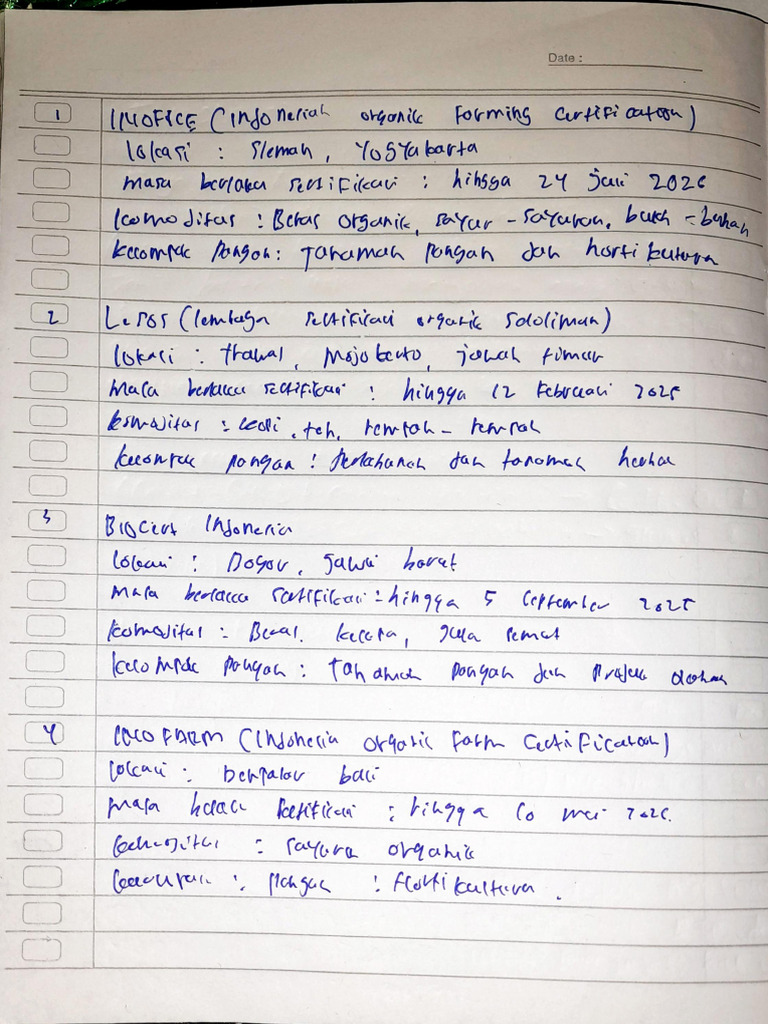 Date :
1 INOFICE (Indonesiah organik Forming certification)
lokasi : Sleman, Yogyakarta
masa berlaku sertifikasi : hingga 24 juli 2026
komoditas : Beras organik, sayur - sayuran, buah - buahan
kelompok pangan : Tanaman pangan dan hortikutura
2 LeSOS (lembaga sertifikasi organik Seloliman)
lokasi : trawas, Mojokerto, jawah timur
masa berlaku sertifikasi : hingga 12 Februari 2025
komoditas : kopi, teh, rempah - rempah
kelompok pangan : Perkebunan dan tanaman herbal
3 BIOCert Indonesia
lokasi : Bogor, jawa barat
masa berlaku sertifikasi : hingga 5 September 2025
komoditas : Beras, kelapa, gula semut
kelompok pangan : Tanaman pangan dan produk olahan
4 INOFARM (Indonesia organic Farm Certification)
lokasi : Denpasar bali
masa berlaku sertifikasi : hingga 10 mei 2026.
komoditas : sayura organik
pangan : Hortikultura.